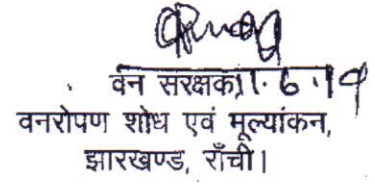 वन संरक्षक, 11.6.19
वनरोपण शोध एवं मूल्यांकन,
झारखण्ड, राँची।